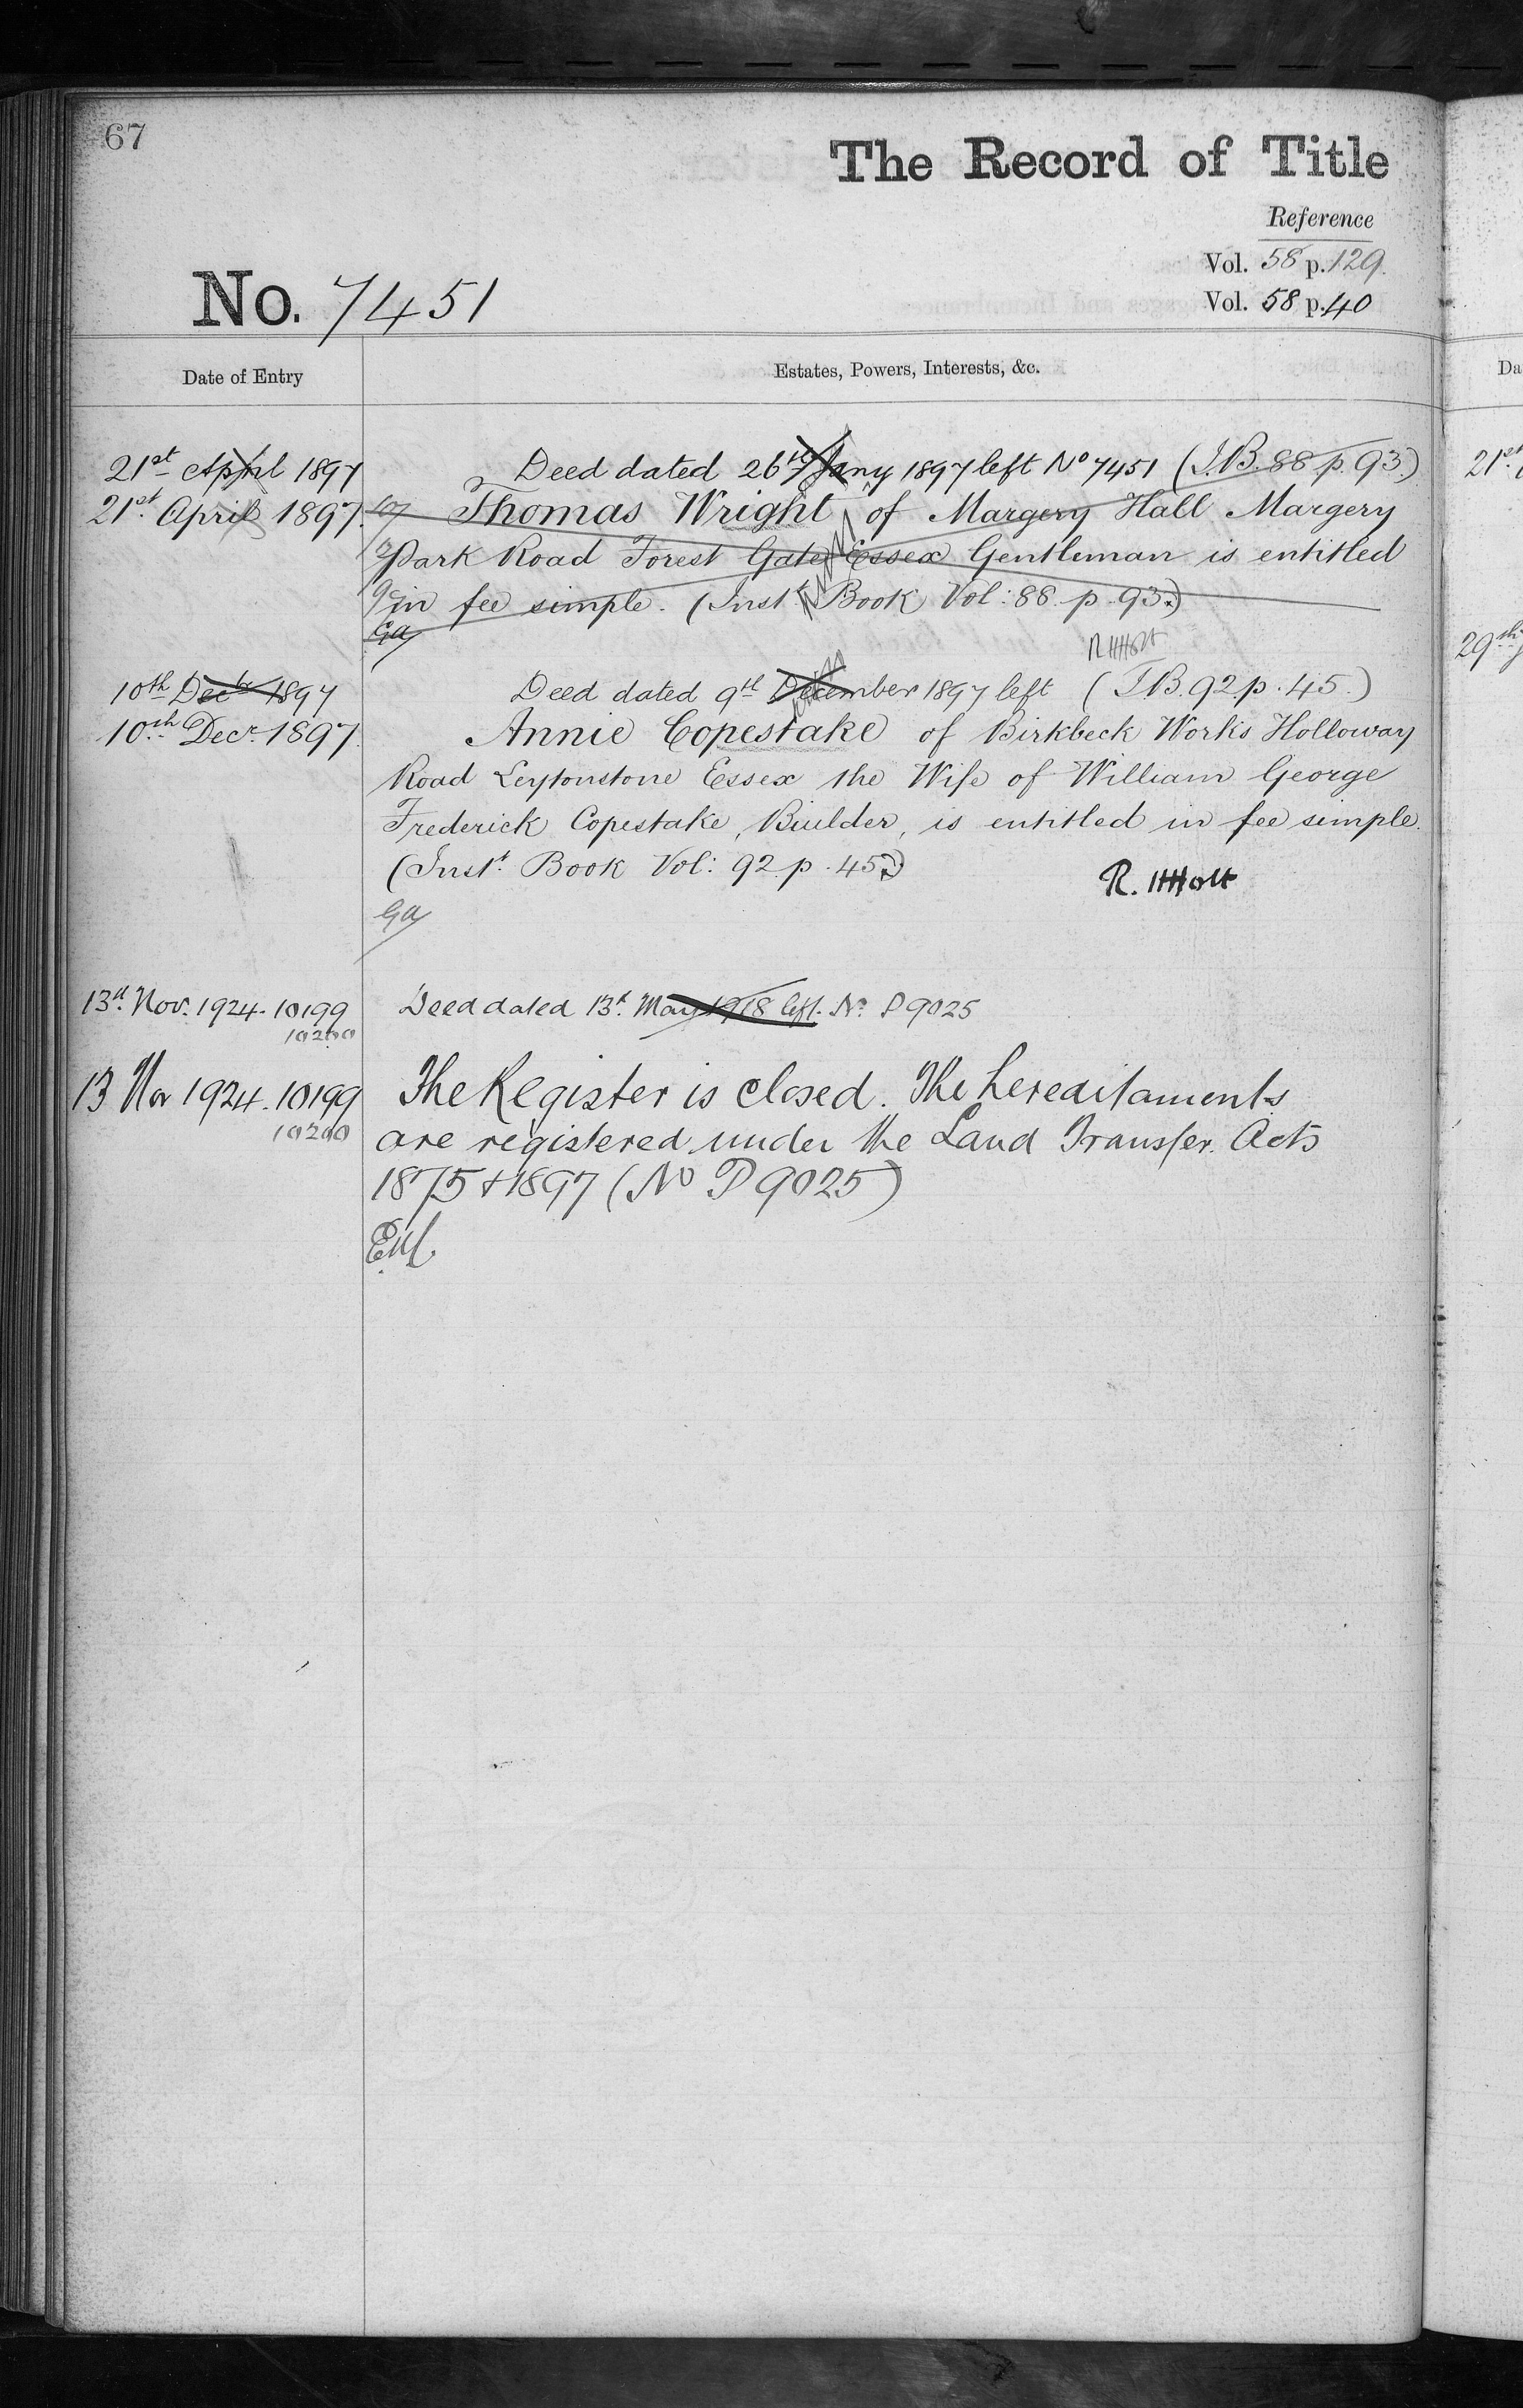 67
The Record of Title
Reference
Vol. 58 p. 129.
Vol. 58 p. 40
No. 7451
Date of Entry
Estates, Powers, Interests, &c.
21st April 1897
Deed dated 26th Jany 1897 left No 7451 (I.B. 88 p. 93.)
21st April 1897.
Thomas Wright of Margery Hall Margery
Park Road Forest Gate Essex Gentleman is entitled
in fee simple. (Inst. Book Vol: 88. p. 93.)
Ga
R HHolt
10th Decbr 1897
Deed dated 9th December 1897 left (I.B. 92 p. 45.)
10th Decr 1897.
Annie Copestake of Birkbeck Works Holloway
Road Leytonstone Essex the Wife of William George
Frederick Copestake, Builder, is entitled in fee simple.
(Inst. Book Vol: 92. p. 45.)
R. HHolt
Ga
13th Nov. 1924. 10199
10200
Deed dated 13th May 1918 left. No. P 9025
13 Nov 1924. 10199
10200
The Register is closed. The hereditaments
are registered under the Land Transfer Acts
1875 & 1897 (No P 9025)
Da
21st
29th